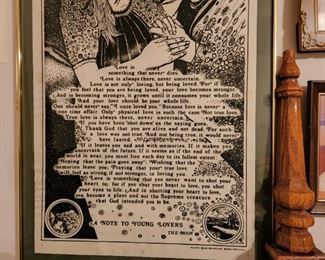 Love is
something that never dies.
Love is always there, never uncertain.
Love is not only loving, but being loved. For if
you feel that you are being loved, your love becomes stronger.
And in becoming stronger, it grows until it consumes your whole life.
And your love should be your whole life.
One should never say, "I once loved you." Because love is never a
one time affair. Only physical love is such the case. Not true love.
True love is always there, never uncertain.
If you have been shot down as the saying goes,
Thank God that you are alive and not dead. For such
a love was not true. And not being true, it would never
have lasted.
If it leaves you sad and with memories. If it makes you
uncertain of the future. If it seems as if the end of the
world is near, you must live each day to its fullest extent.
Hoping that the pain goes away. Wishing that the
memories leave you; Praying that your true love
will feel as strong, if not stronger, in loving you.
Love is something that you never want to shut your
heart to, for if you shut your heart to love, you shut
your eyes to life. And in shutting your heart to love,
you become a place and not the Supreme creature
that God intended you to be.
A NOTE TO YOUNG LOVERS